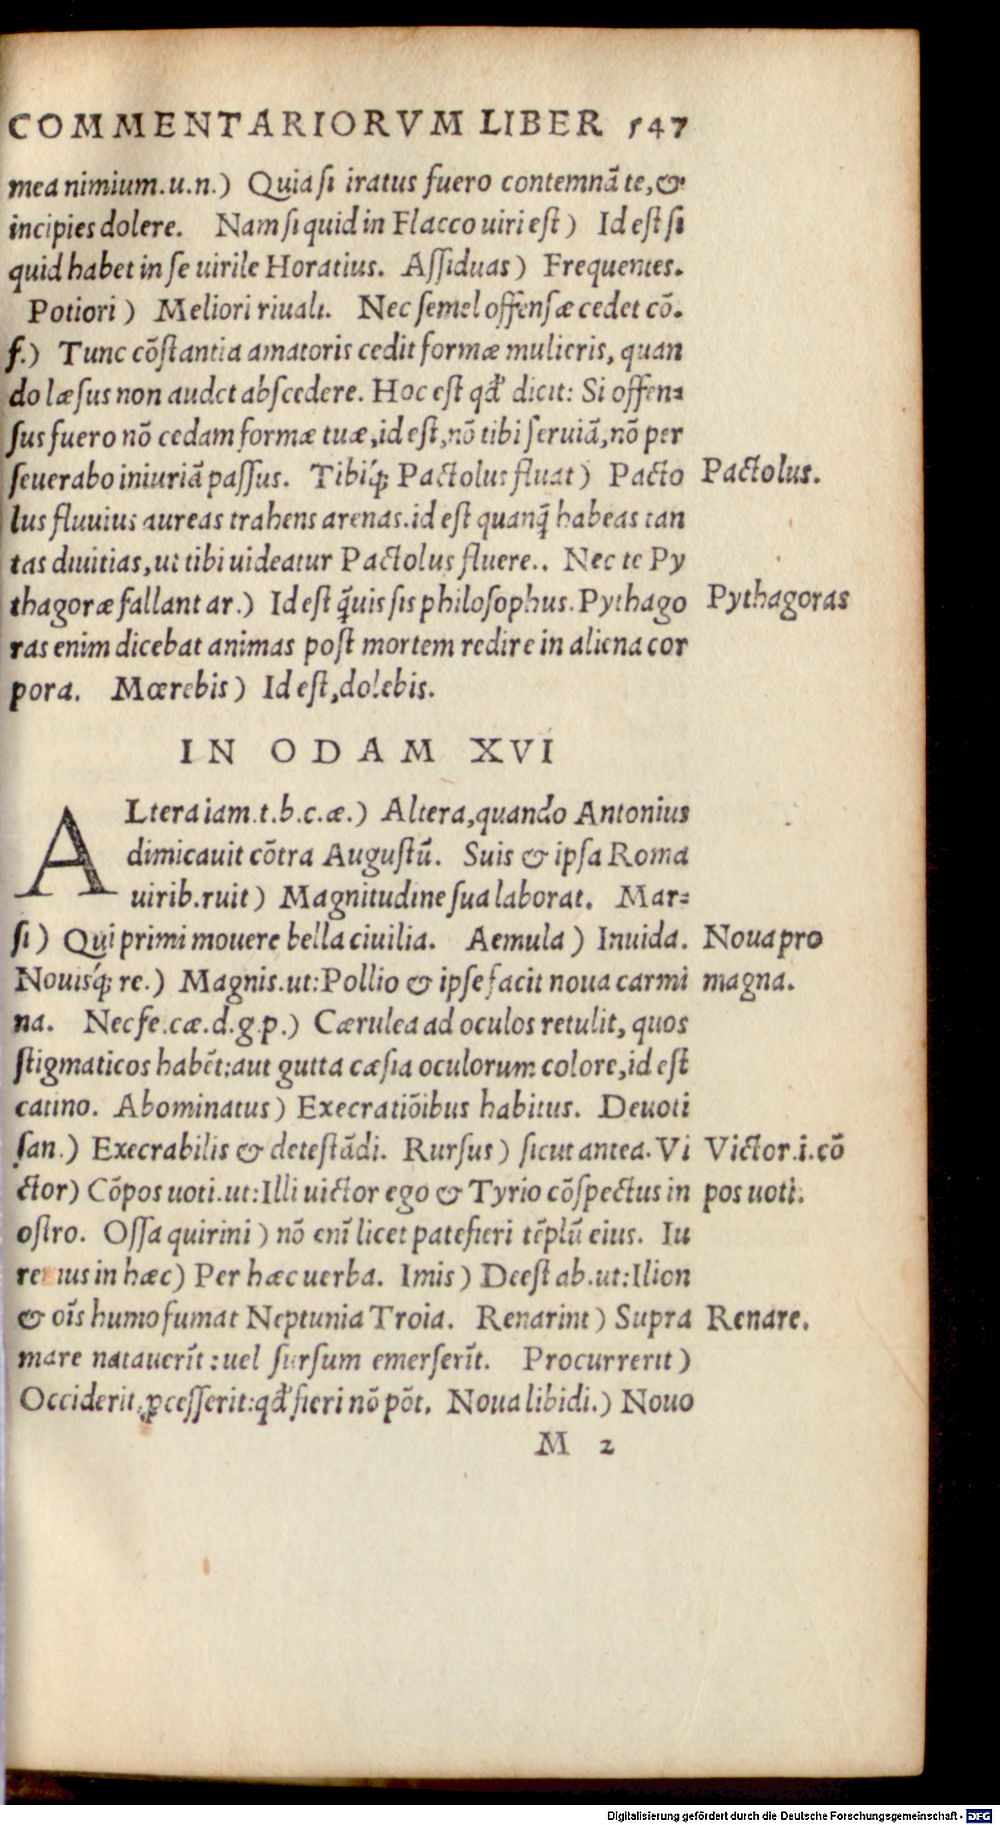 COMMENTARIORVM LIBER 547
mea nimium.u.n.) Quia si iratus fuero contemnã te,&
incipies dolere. Nam si quid in Flacco uiri est) Id est si
quid habet in se uirile Horatius. Assiduas) Frequentes.
Potiori) Meliori riuali. Nec semel offensæ cedet cõ.
f.) Tunc cõstantia amatoris cedit formæ mulieris, quan
do læsus non audet abscedere. Hoc est qđ dicit: Si offen⸗
sus fuero nõ cedam formæ tuæ,id est,nõ tibi seruiã,nõ per
seuerabo iniuriã passus. Tibiq́; Pactolus fluat) Pacto Pactolus.
lus fluuius aureas trahens arenas.id est quanq̃ habeas tan
tas diuitias,ut tibi uideatur Pactolus fluere.. Nec te Py
thagoræ fallant ar.) Id est q̃uis sis philosophus.Pythago Pythagoras
ras enim dicebat animas post mortem redire in aliena cor
pora. Mœrebis) Id est,dolebis.
IN ODAM XVI
ALtera iam.t.b.c.æ.) Altera,quando Antonius
dimicauit cõtra Augustũ. Suis & ipsa Roma
uirib.ruit) Magnitudine sua laborat. Mar⸗
si) Qui primi mouere bella ciuilia. Aemula) Inuida. Noua pro
Nouisq́; re.) Magnis.ut:Pollio & ipse facit noua carmi magna.
na. Nec fe.cæ.d.g.p.) Cærulea ad oculos retulit, quos
stigmaticos habẽt:aut gutta cæsia oculorum colore,id est
catino. Abominatus) Execratiõibus habitus. Deuoti
san.) Execrabilis & detestãdi. Rursus) sicut antea. Vi Victor.i.cõ
ctor) Cõpos uoti.ut:Illi uictor ego & Tyrio cõspectus in pos uoti.
ostro. Ossa quirini) nõ enĩ licet patefieri tẽplũ eius. Iu
remus in hæc) Per hæc uerba. Imis) Deest ab.ut:Ilion
& oĩs humo fumat Neptunia Troia. Renarint) Supra Renare.
mare natauerĩt:uel sursum emerserĩt. Procurrerit)
Occiderit,ꝓcesserit:qđ fieri nõ põt. Noua libidi.) Nouo
M 2
Digitalisierung gefördert durch die Deutsche Forschungsgemeinschaft - DFG